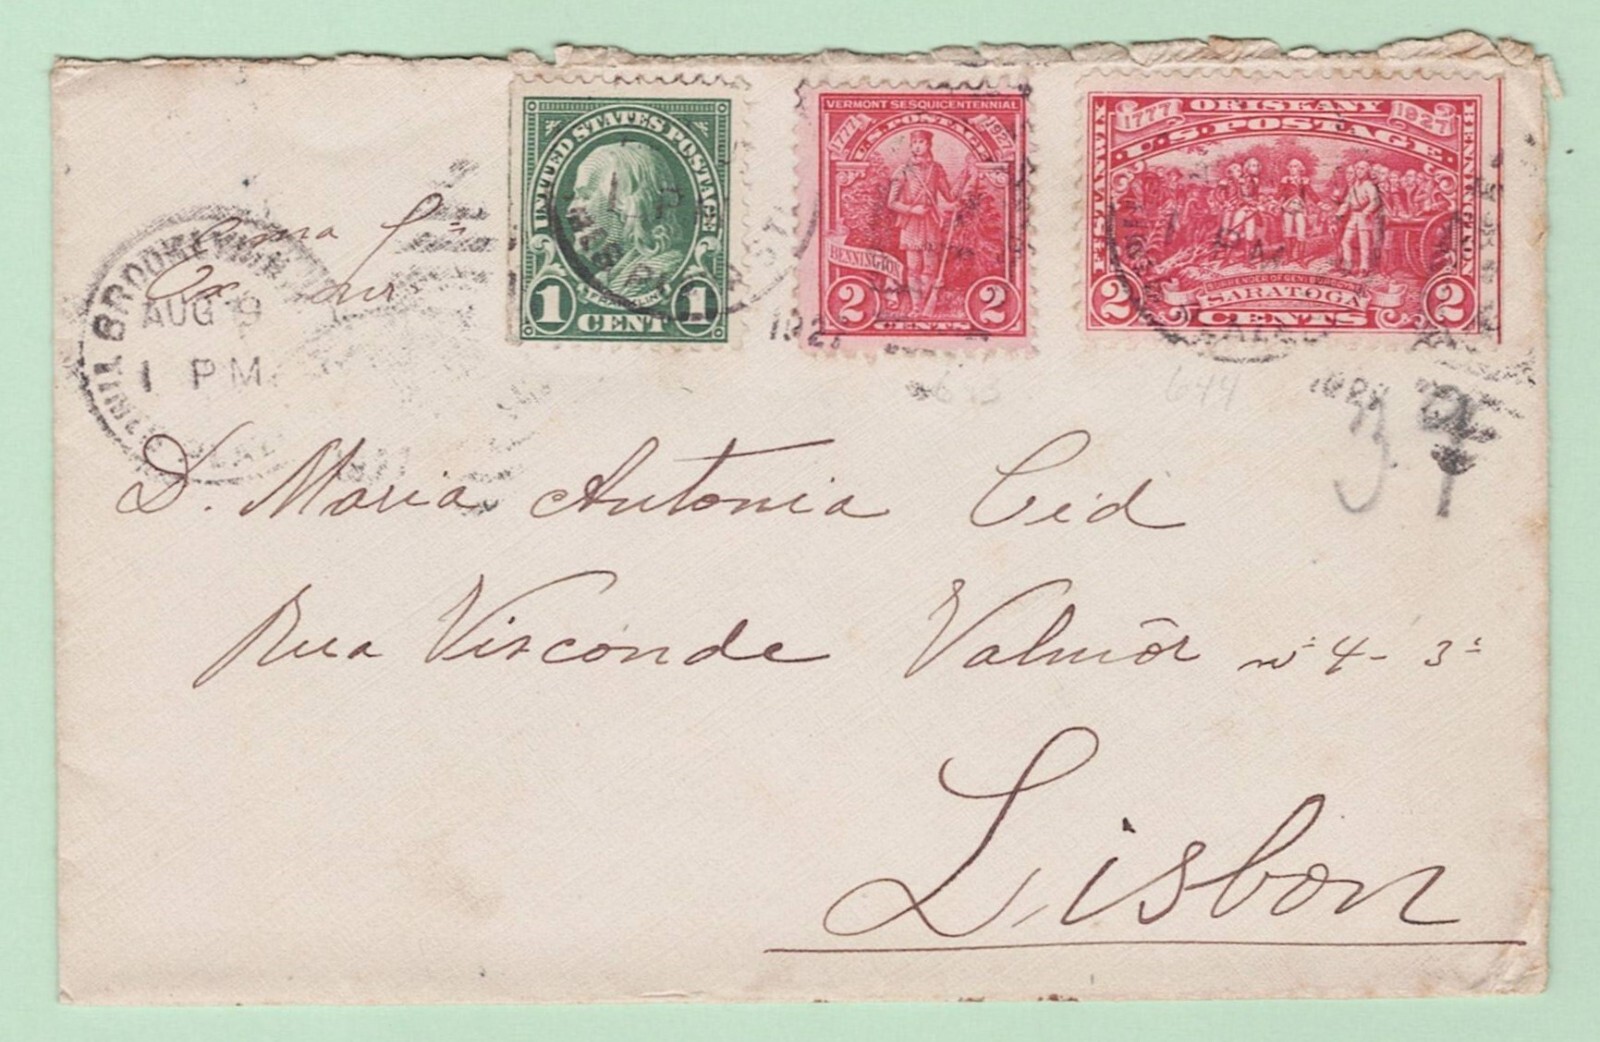 UNITED STATES POSTAGE
FRANKLIN
1 CENT 1
VERMONT SESQUICENTENNIAL
1777 U.S. POSTAGE 1927
BENNINGTON
2 CENTS 2
ORISKANY
1777 U.S. POSTAGE 1927
FT. STANWIX
BENNINGTON
SURRENDER OF GEN. BURGOYNE
SARATOGA
2 CENTS 2
BROOKLYN
AUG 9
1 PM
1927
643
644
D. Maria Antonia Cid
Rua Visconde Valmôr nº 4 - 3º
Lisbon